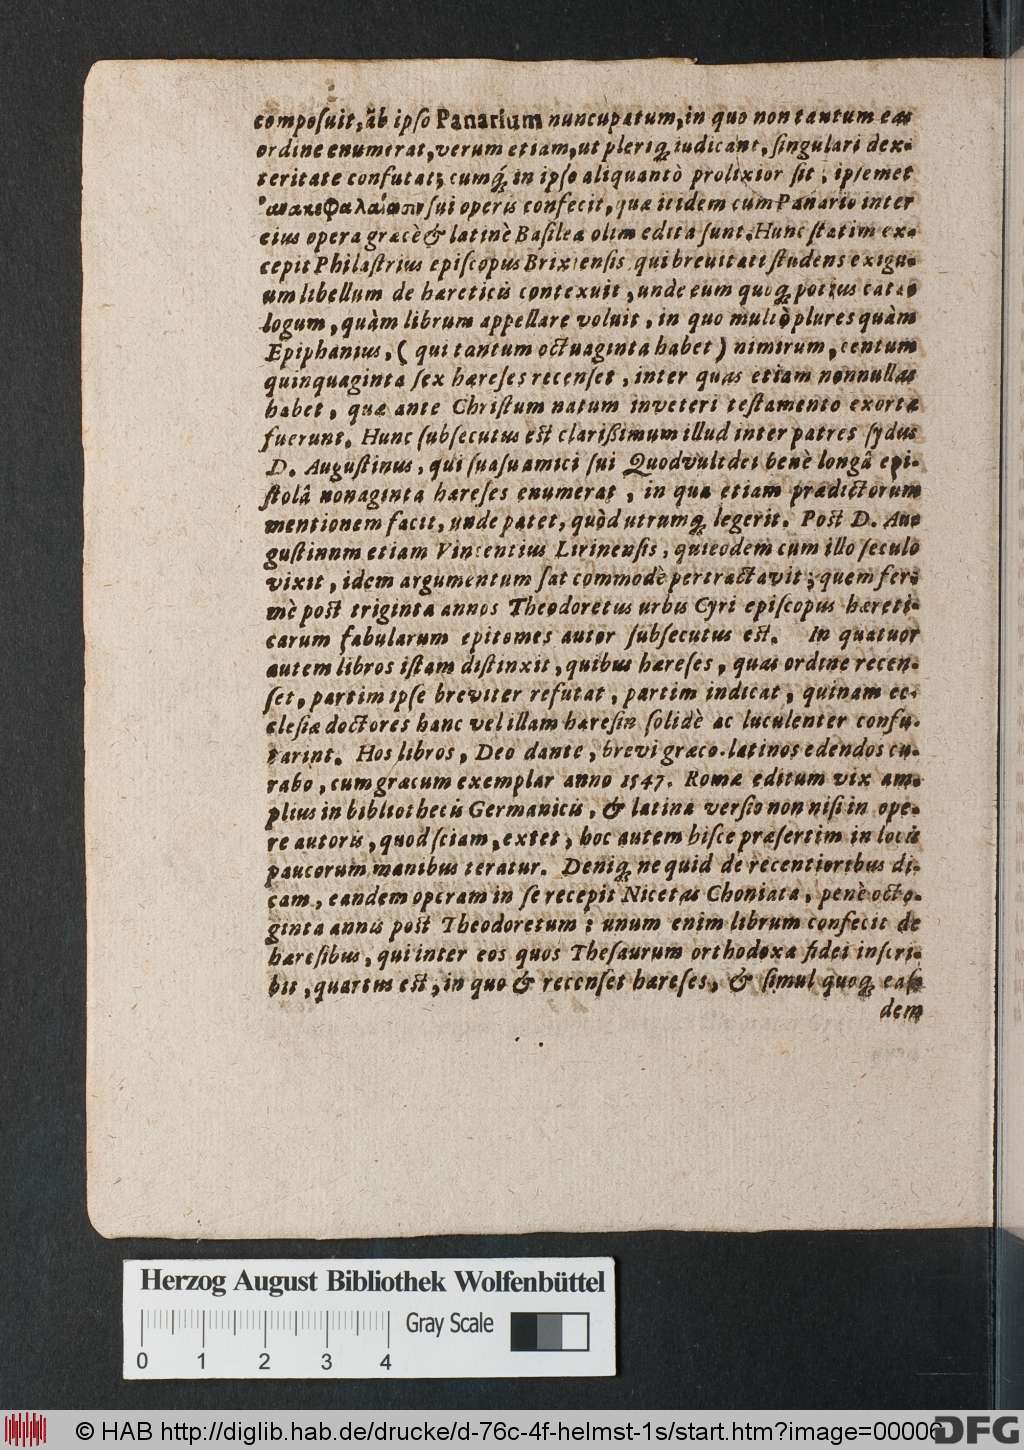 compoſuit, ab ipſo Panarium nuncupatum, in quo non tantum eas
ordine enumerat, verum etiam, ut pleriq́; iudicant, ſingulari dex-
teritate confutat; cumq́; in ipſo aliquantò prolixior ſit, ipſemet
ἀνακεφαλαίωσιν ſui operis confecit, quæ itidem cum Panario inter
eius opera græcè & latinè Baſileæ olim edita ſunt. Hunc ſtatim ex-
cepit Philaſtrius epiſcopus Brixienſis qui brevitati ſtudens exigu-
um libellum de hæreticis contexuit, unde eum quoq́; potius cata-
logum, quàm librum appellare voluit, in quo multò plures quàm
Epiphanius, ( qui tantum octuaginta habet ) nimirum, centum
quinquaginta ſex hæreſes recenſet, inter quas etiam nonnullas
habet, quæ ante Chriſtum natum in veteri teſtamento exortæ
fuerunt. Hunc ſubſecutus eſt clarißimum illud inter patres ſydus
D. Auguſtinus, qui ſuaſu amici ſui Quodvultdei benè longâ epi-
ſtolâ nonaginta hæreſes enumerat, in qua etiam prædictorum
mentionem facit, unde patet, quòd utrumq́; legerit. Poſt D. Au-
guſtinum etiam Vincentius Lirinenſis, qui eodem cum illo ſeculo
vixit, idem argumentum ſat commodè pertractavit; quem fer-
mè poſt triginta annos Theodoretus urbis Cyri epiſcopus hæreti-
carum fabularum epitomes autor ſubſecutus eſt. In quatuor
autem libros iſtam diſtinxit, quibus hæreſes, quas ordine recen-
ſet, partim ipſe breviter refutat, partim indicat, quinam ec-
cleſiæ doctores hanc vel illam hæreſin ſolidè ac luculenter confu-
tarint. Hos libros, Deo dante, brevi græco-latinos edendos cu-
rabo, cum græcum exemplar anno 1547. Romæ editum vix am-
plius in bibliothecis Germanicis, & latina verſio non niſi in ope-
re autoris, quod ſciam, extet, hoc autem hiſce præſertim in locis
paucorum manibus teratur. Deniq́; ne quid de recentioribus di-
cam, eandem operam in ſe recepit Nicetas Choniata, penè octo-
ginta annis poſt Theodoretum: unum enim librum confecit de
hæreſibus, qui inter eos quos Theſaurum orthodoxæ fidei inſcri-
bit, quartus eſt, in quo & recenſet hæreſes, & ſimul quoq́; eaſ-
dem
Herzog August Bibliothek Wolfenbüttel
Gray Scale
0 1 2 3 4
© HAB http://diglib.hab.de/drucke/d-76c-4f-helmst-1s/start.htm?image=00006
DFG